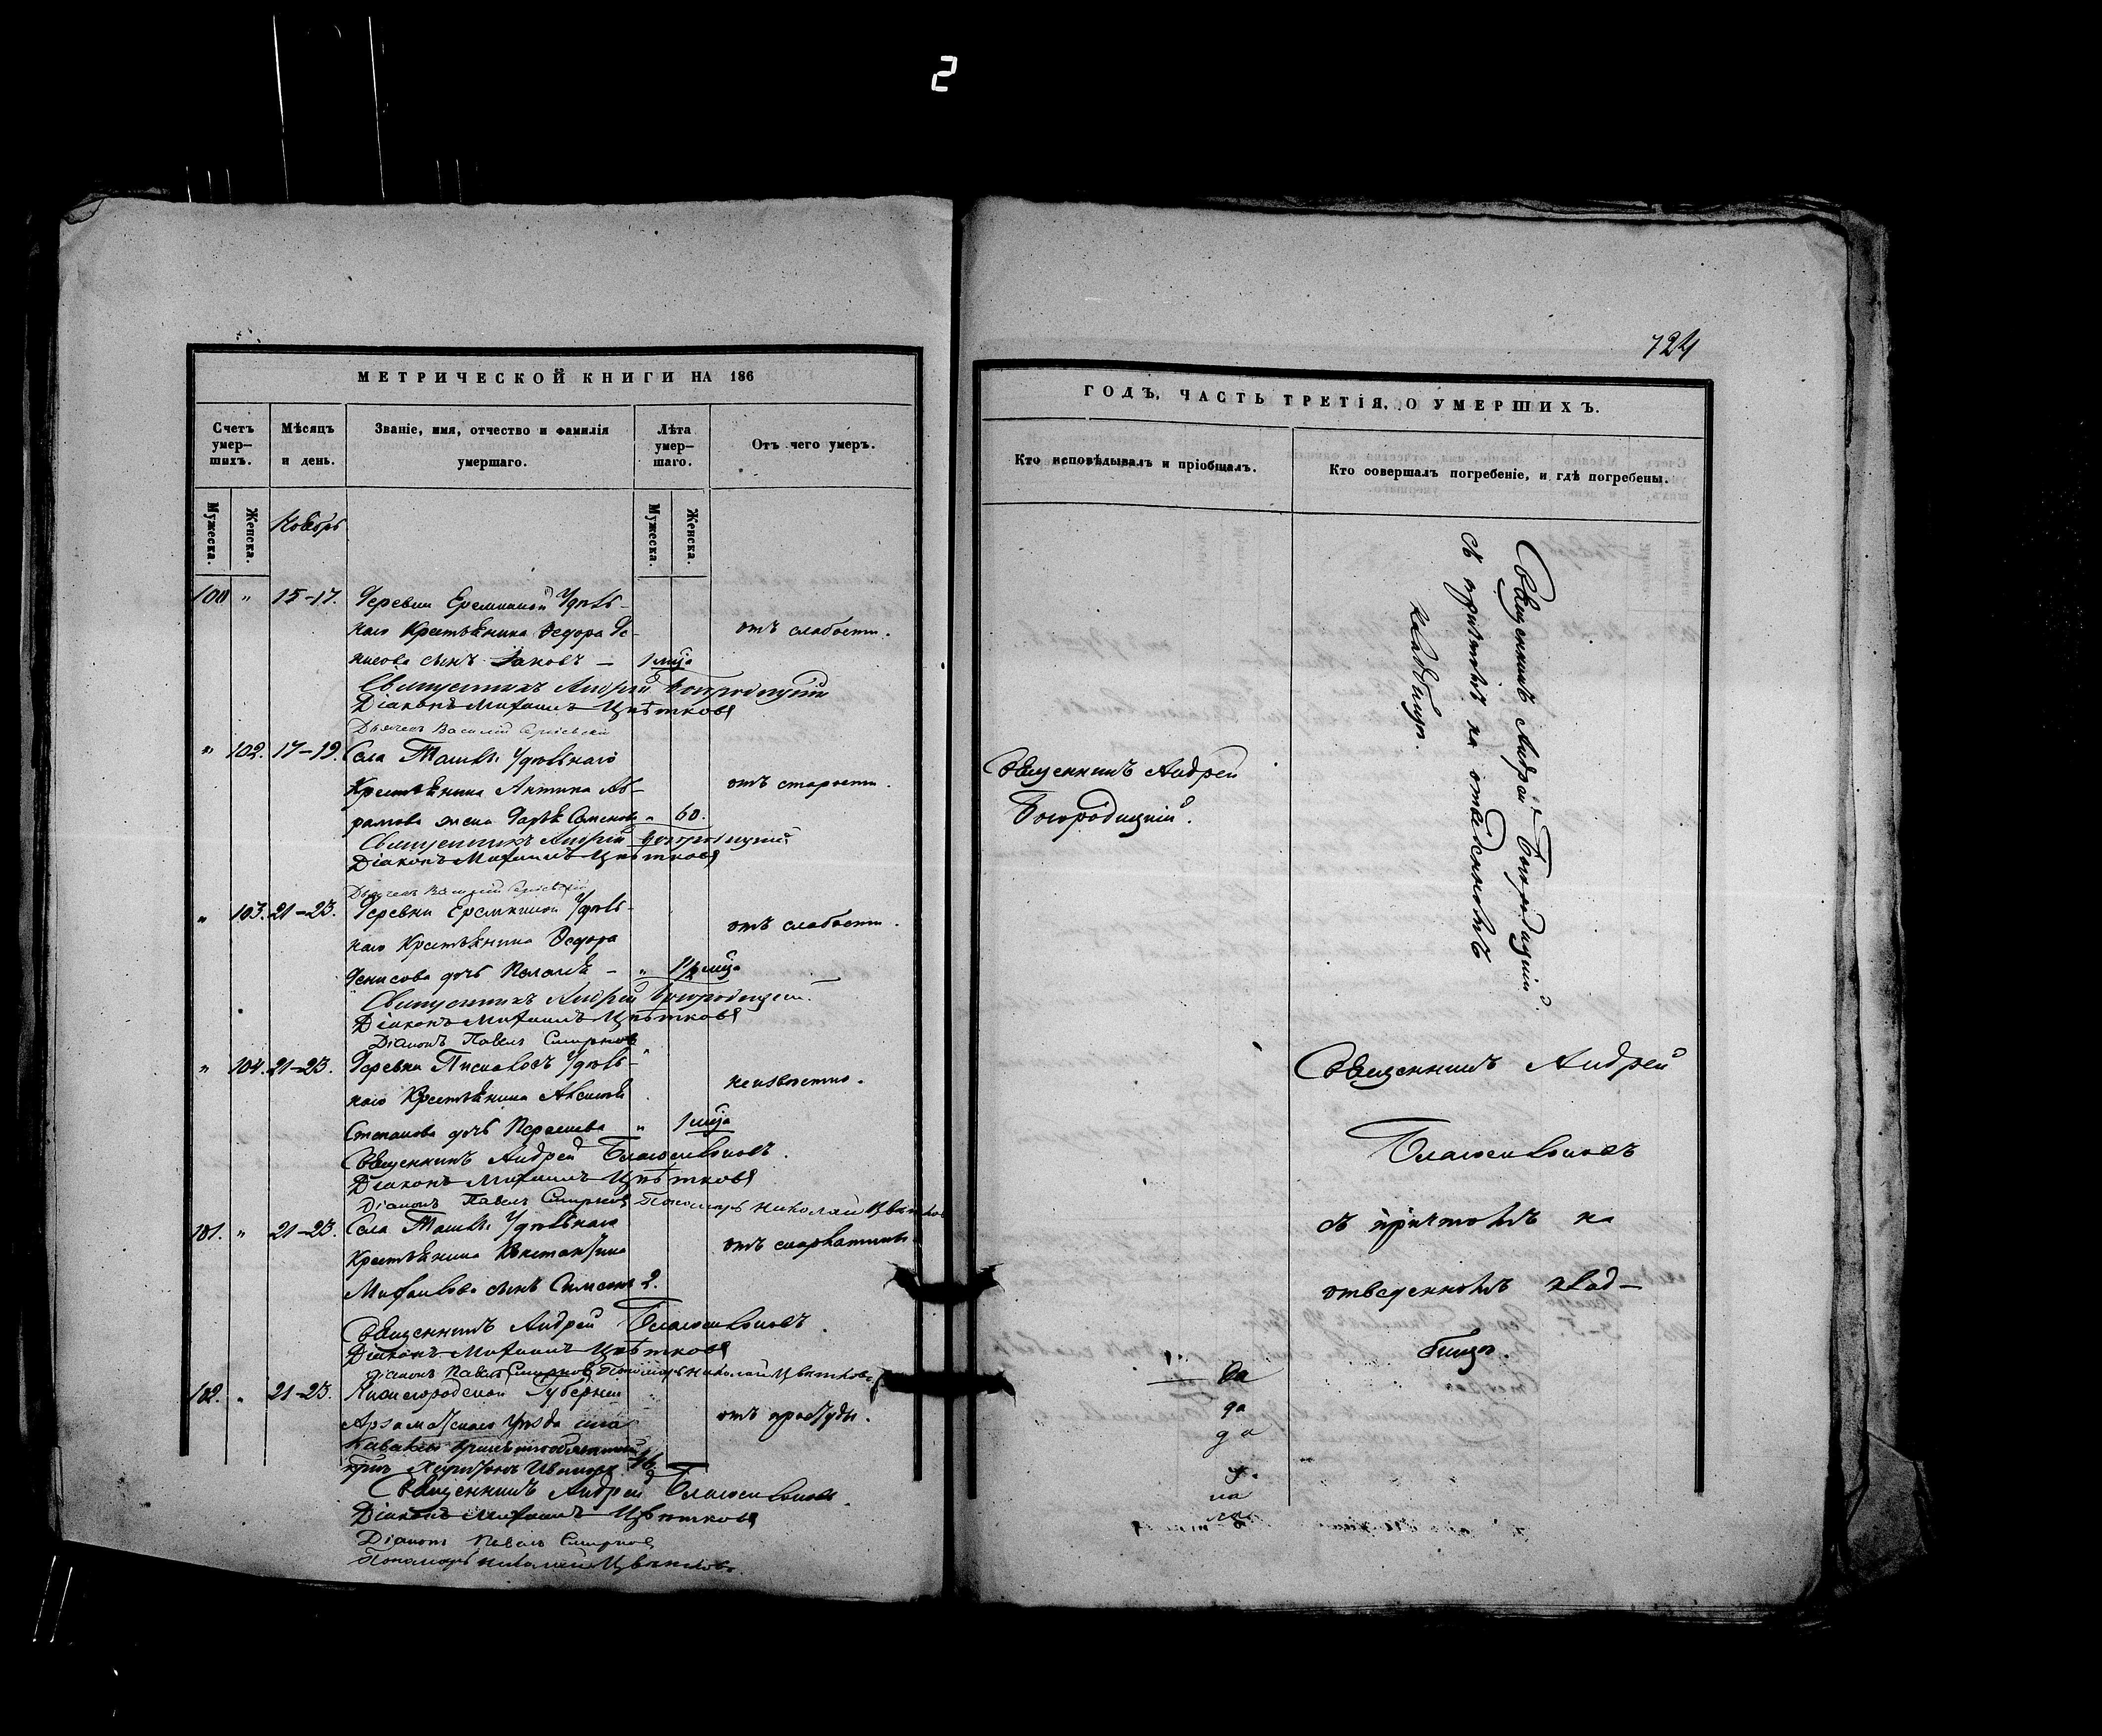 2
724
МЕТРИЧЕСКОЙ КНИГИ НА 186
Счетъ умер-шихъ.
Мѣсяцъ и день.
Званіе, имя, отчество и фамилія умершаго.
Лѣта умер-шаго.
Отъ чего умеръ.
Мужеска.
Женска.
Мужеска.
Женска.
Ноябрь
100 " 15-17. Деревни Еремкиной Удѣль-
наго Крестьянина Ѳедора Де- отъ слабости.
нисова сынъ Іаковъ — 1 м-ца
Священникъ Андрей Богородицкій
Діаконъ Михаилъ Цвѣтковъ
Дьячекъ Василій
" 102. 17-19. Села Ташлы Удѣльнаго
Крестьянина Антипа Аб- отъ старости.
рамова жена Дарья Семенова " 60.
Священникъ Андрей Богородицкій
Діаконъ Михаилъ Цвѣтковъ
Дьячекъ Василій
" 103. 21-23. Деревни Еремкиной Удѣль-
наго Крестьянина Ѳедора отъ слабости.
Денисова дочь Пелагія — " 1 1/2 м-ца
Священникъ Андрей Богородицкій
Діаконъ Михаилъ Цвѣтковъ
Діаконъ Павелъ Смирновъ
" 104. 21-23. Деревни Удѣль-
наго Крестьянина неизвѣстно.
Степанова дочь " 1 м-ца
Священникъ Андрей
Діаконъ Михаилъ Цвѣтковъ
Діаконъ Павелъ Смирновъ Пономарь Николай Цвѣтковъ
101. " 21-23. Села Ташлы Удѣльнаго
Крестьянина Константина отъ скарлатины
Михайлова сынъ Симеонъ 2.
Священникъ Андрей
Діаконъ Михаилъ Цвѣтковъ
Діаконъ Павелъ Смирновъ Пономарь Николай Цвѣтковъ
102. " 21-23. Нижегородской Губерніи
Арзамасскаго Уѣзда села отъ простуды.
Священникъ Андрей
Діаконъ Михаилъ Цвѣтковъ
Діаконъ Павелъ Смирновъ
Пономарь Николай Цвѣтковъ
ГОДЪ, ЧАСТЬ ТРЕТІЯ, О УМЕРШИХЪ.
Кто исповѣдывалъ и пріобщалъ.
Кто совершалъ погребеніе, и гдѣ погребены.
Священникъ Андрей
Богородицкій.
Священникъ Андрей Богородицкій
съ причтомъ на отведенномъ
кладбищѣ.
Священникъ Андрей
съ причтомъ на
отведенномъ клад-
бищѣ.